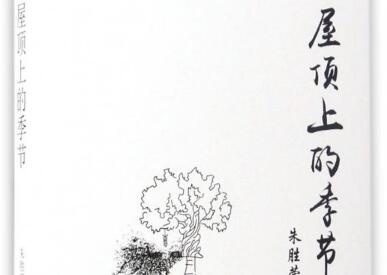 屋顶上的季节
屋顶上的季节
朱胜